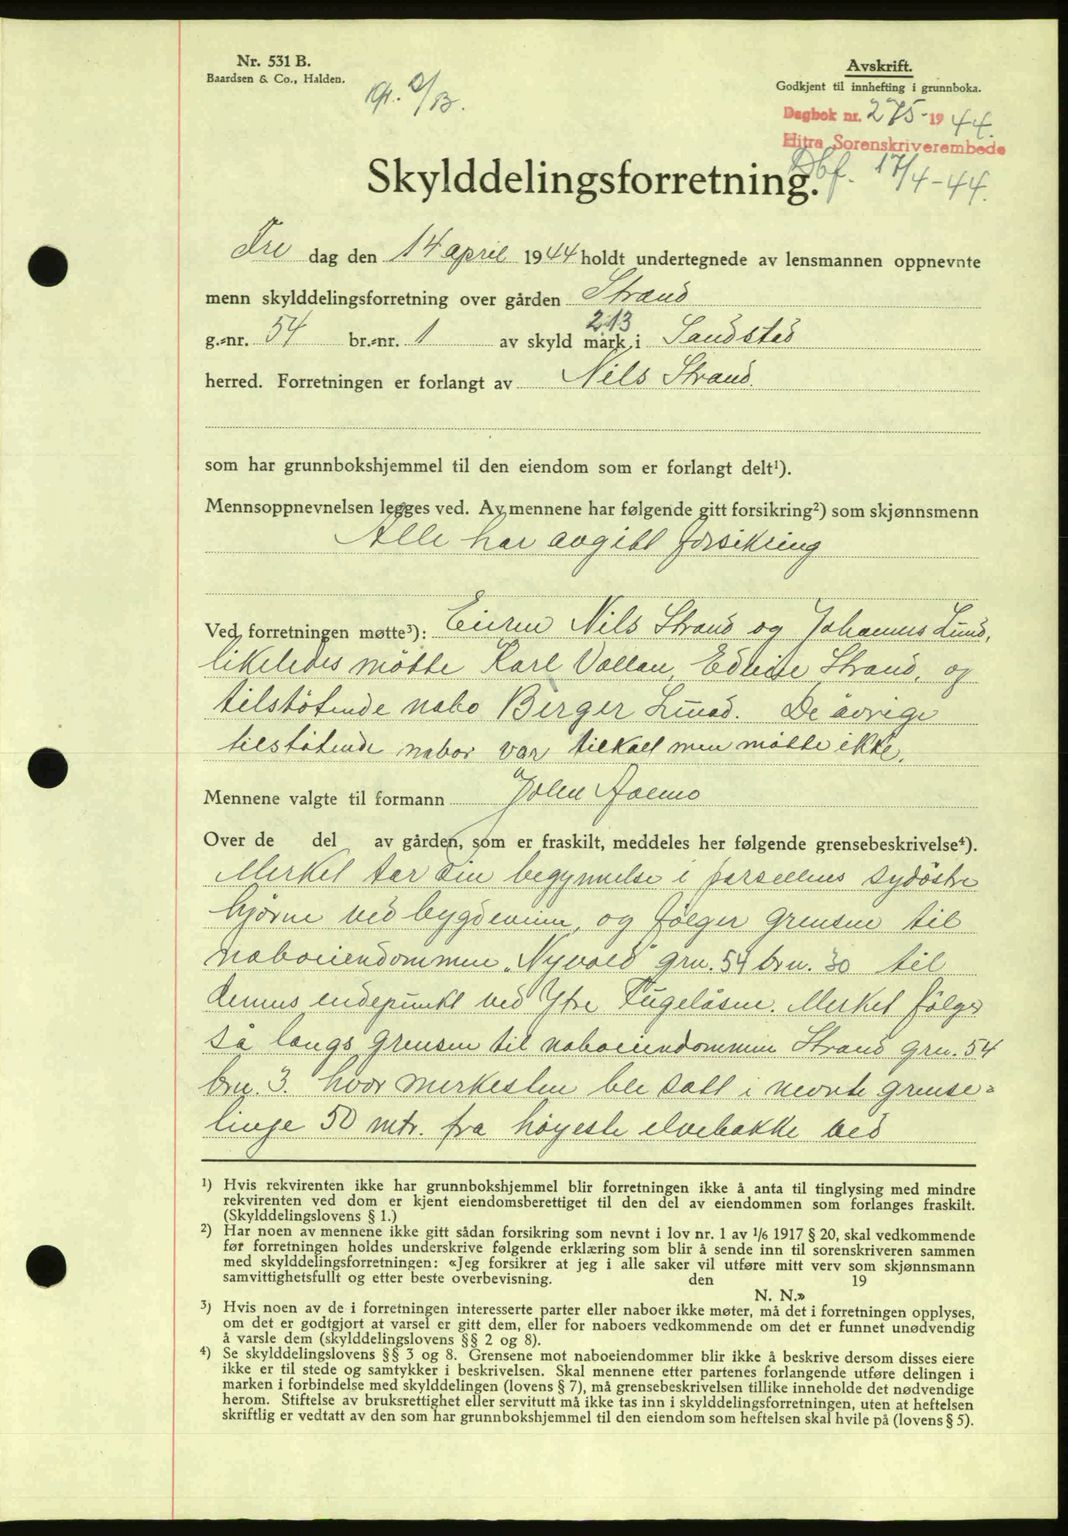 Nr. 531 B.
Baardsen & Co., Halden.
Avskrift.
Godkjent til innhefting i grunnboka.
Dagbok nr. 275-1944.
Hitra Sorenskriverembede
Dbf. 17/4-44.
Skylddelingsforretning.
Fre dag den 14 april 1944 holdt undertegnede av lensmannen oppnevnte
menn skylddelingsforretning over gården Strand
g.-nr. 54 br.-nr. 1 av skyld mark 2 13 i Sandstad
herred. Forretningen er forlangt av Nils Strand.
som har grunnbokshjemmel til den eiendom som er forlangt delt¹).
Mennsoppnevnelsen legges ved. Av mennene har følgende gitt forsikring²) som skjønnsmenn
Alle har avgitt forsikring
Ved forretningen møtte³): Eieren Nils Strand og Johannes Lund,
likeledes møtte Karl Vollan, Edvine Strand, og
tilstøtende nabo Birger Lund. De øvrige
tilstøtende nabor var tilkalt men møtte ikke.
Mennene valgte til formann John Aalmo
Over de del av gården, som er fraskilt, meddeles her følgende grensebeskrivelse⁴).
Merket tar sin begynnelse i parsellens sydøstre
hjørne ved bygdeveien, og følger grensen til
naboeiendommen "Nyvold" grn. 54 brn. 30 til
dennes endepunkt ved Ytre Fugelåsen. Merket følger
så langs grensen til naboeiendommen Strand grn. 54
brn. 3. hvor merkesten ble satt i nevnte grense-
linje 50 mtr. fra høyeste elvebakke ved
¹) Hvis rekvirenten ikke har grunnbokshjemmel blir forretningen ikke å anta til tinglysing med mindre
rekvirenten ved dom er kjent eiendomsberettiget til den del av eiendommen som forlanges fraskilt.
(Skylddelingslovens § 1.)
²) Har noen av mennene ikke gitt sådan forsikring som nevnt i lov nr. 1 av 1/6 1917 § 20, skal vedkommende
før forretningen holdes underskrive følgende erklæring som blir å sende inn til sorenskriveren sammen
med skylddelingsforretningen: «Jeg forsikrer at jeg i alle saker vil utføre mitt verv som skjønnsmann
samvittighetsfullt og etter beste overbevisning. den 19
N. N.»
³) Hvis noen av de i forretningen interesserte parter eller naboer ikke møter, må det i forretningen opplyses,
om det er godtgjort at varsel er gitt dem, eller for naboers vedkommende om det er funnet unødvendig
å varsle dem (skylddelingslovens §§ 2 og 8).
⁴) Se skylddelingslovens §§ 3 og 8. Grensene mot naboeiendommer blir ikke å beskrive dersom disses eiere
ikke er til stede og samtykker i beskrivelsen. Skal mennene etter partenes forlangende utføre delingen i
marken i forbindelse med skylddelingen (lovens § 7), må grensebeskrivelsen tillike inneholde det nødvendige
herom. Stiftelse av bruksrettighet eller servitutt må ikke tas inn i skylddelingsforretningen, uten at heftelsen
skriftlig er vedtatt av den som har grunnbokshjemmel til den eiendom som heftelsen skal hvile på (lovens § 5).